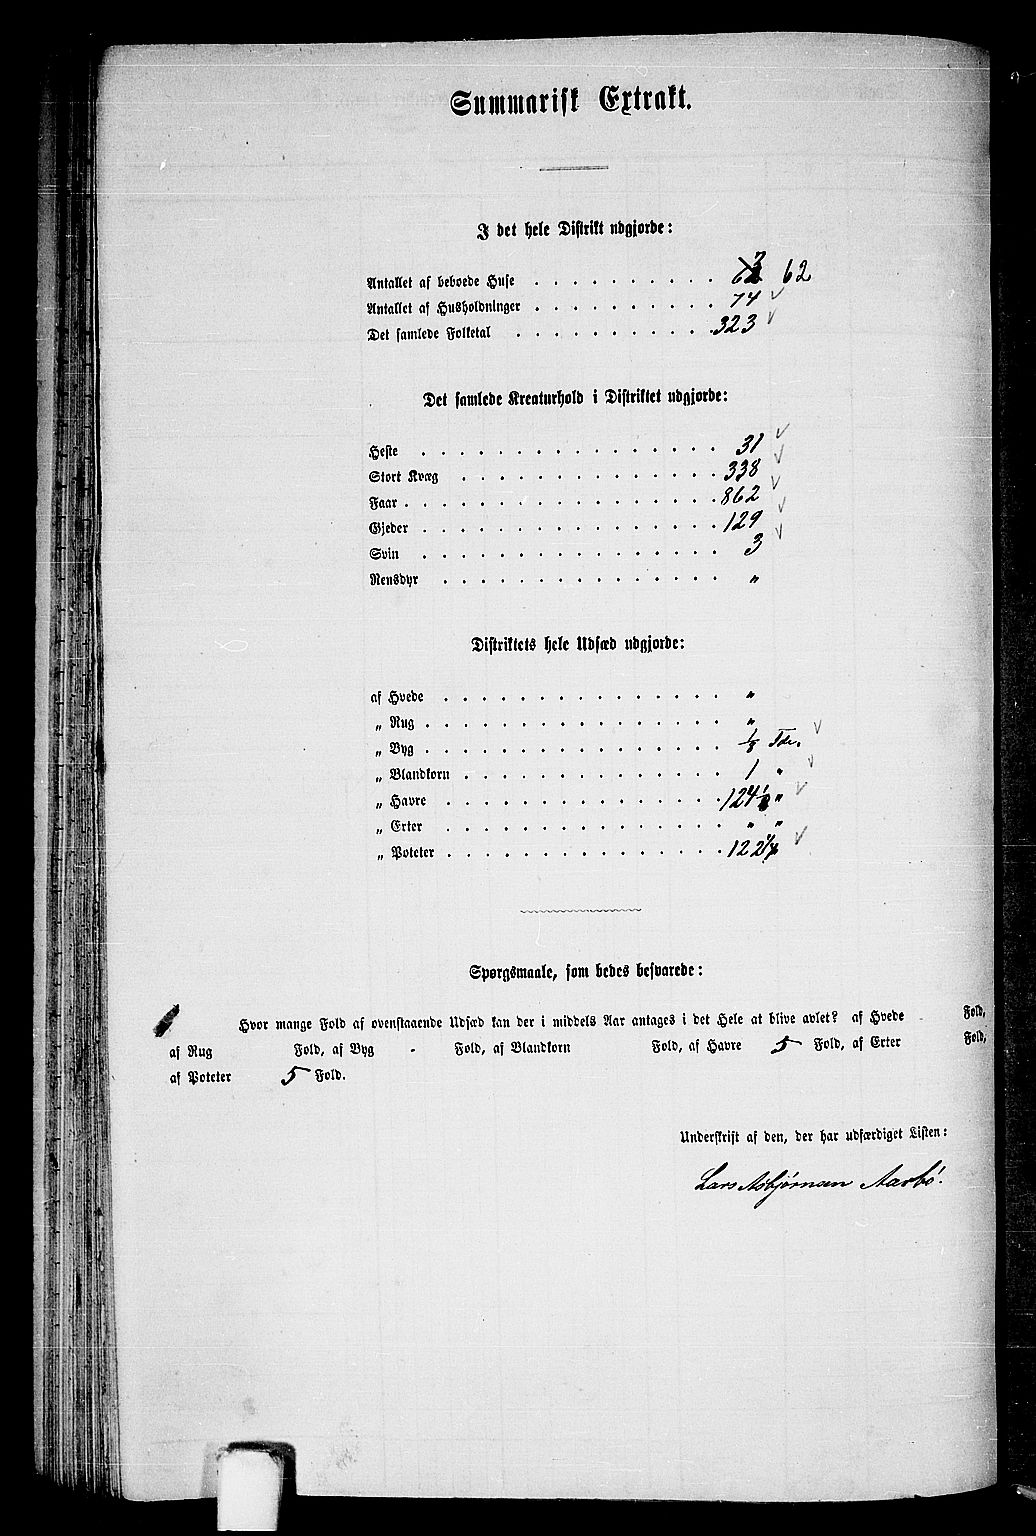 Summarisk Extrakt.
I det hele Distrikt udgjorde:
Antallet af beboede Huse 62
Antallet af Husholdninger 74
Det samlede Folketal 323
Det samlede Kreaturhold i Distriktet udgjorde:
Heste 31
Stort Kvæg 338
Faar 862
Gjeder 129
Svin 3
Rensdyr "
Distriktets hele Udsæd udgjorde:
af Hvede "
„ Rug "
„ Byg 1/8 Tdr.
„ Blandkorn 1 "
„ Havre 124 "
„ Erter " "
„ Poteter 122 1/4
Spørgsmaale, som bedes besvarede:
Hvor mange Fold af ovenstaaende Udsæd kan der i middels Aar antages i det Hele at blive avlet? af Hvede - Fold,
af Rug Fold, af Byg - Fold, af Blandkorn Fold, af Havre 5 Fold, af Erter Fold,
af Poteter 5 Fold.
Underskrift af den, der har udfærdiget Listen:
Lars Asbjørnsen Aarbø.